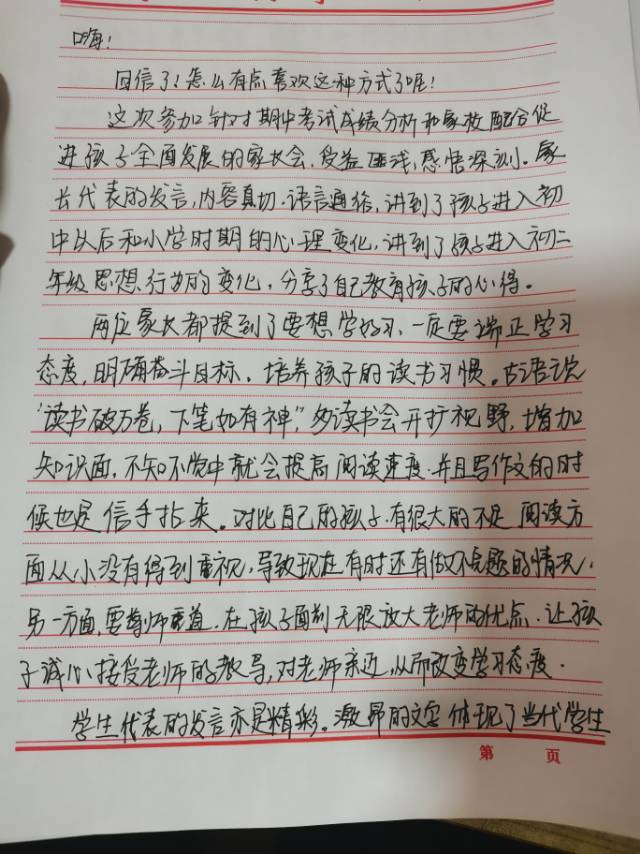 嗨！
回信了！怎么有点喜欢这种方式了呢！
这次参加针对期中考试成绩分析和家校配合促
进孩子全面发展的家长会，受益匪浅，感悟深刻。家
长代表的发言，内容真切，语言通俗，讲到了孩子进入初
中以后和小学时期的心理变化，讲到了孩子进入初二
年级思想行为的变化，分享了自己教育孩子的心得。
两位家长都提到了要想学好习，一定要端正学习
态度，明确奋斗目标，培养孩子的读书习惯。古语说
“读书破万卷，下笔如有神”，多读书会开扩视野，增加
知识面，不知不觉中就会提高阅读速度，并且写作文的时
候也是信手拈来。对比自己的孩子，有很大的不足，阅读方
面从小没有得到重视，导致现在有时还有做不完题的情况，
另一方面，要尊师重道，在孩子面前无限放大老师的优点，让孩
子诚心接受老师的教导，对老师亲近，从而改变学习态度。
学生代表的发言亦是精彩。激昂的文字体现了当代学生
第 页